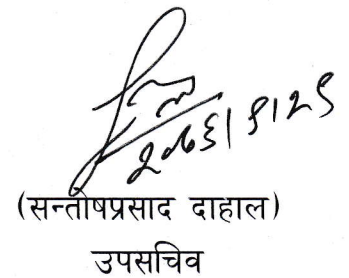 २०७६।९।२९
(सन्तोषप्रसाद दाहाल)
उपसचिव